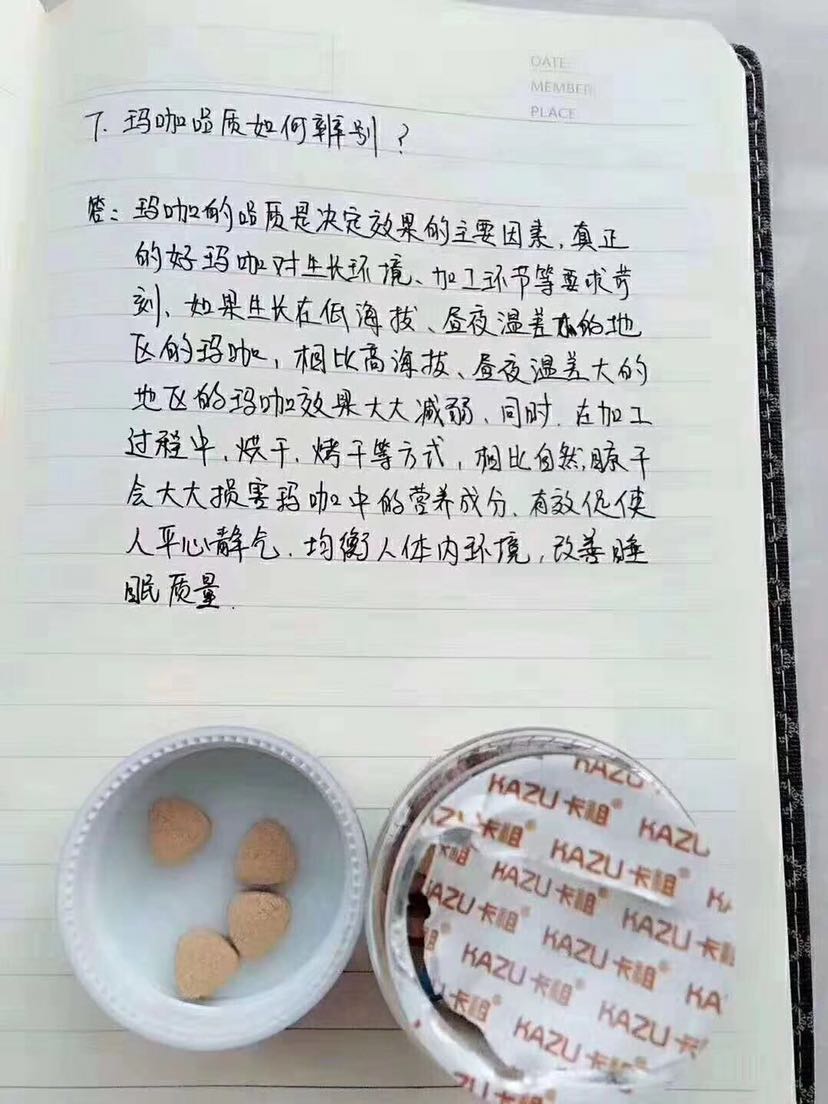 DATE:
MEMBER:
PLACE
7. 玛咖品质如何辨别？
答：玛咖的品质是决定效果的主要因素，真正
的好玛咖对生长环境、加工环节等要求苛
刻，如果生长在低海拔、昼夜温差 的地
区的玛咖，相比高海拔、昼夜温差大的
地区的玛咖效果大大减弱，同时，在加工
过程中，烘干，烤干等方式，相比自然晾干
会大大损害玛咖中的营养成分，有效促使
人平心静气，均衡人体内环境，改善睡
眠质量.
KAZU
KAZU卡祖® KAZU
卡祖® KAZU卡祖®
KAZU卡祖® KAZU
KAZU卡祖® KAZU卡祖®
KAZU卡祖® KAZU卡
KAZU卡祖®